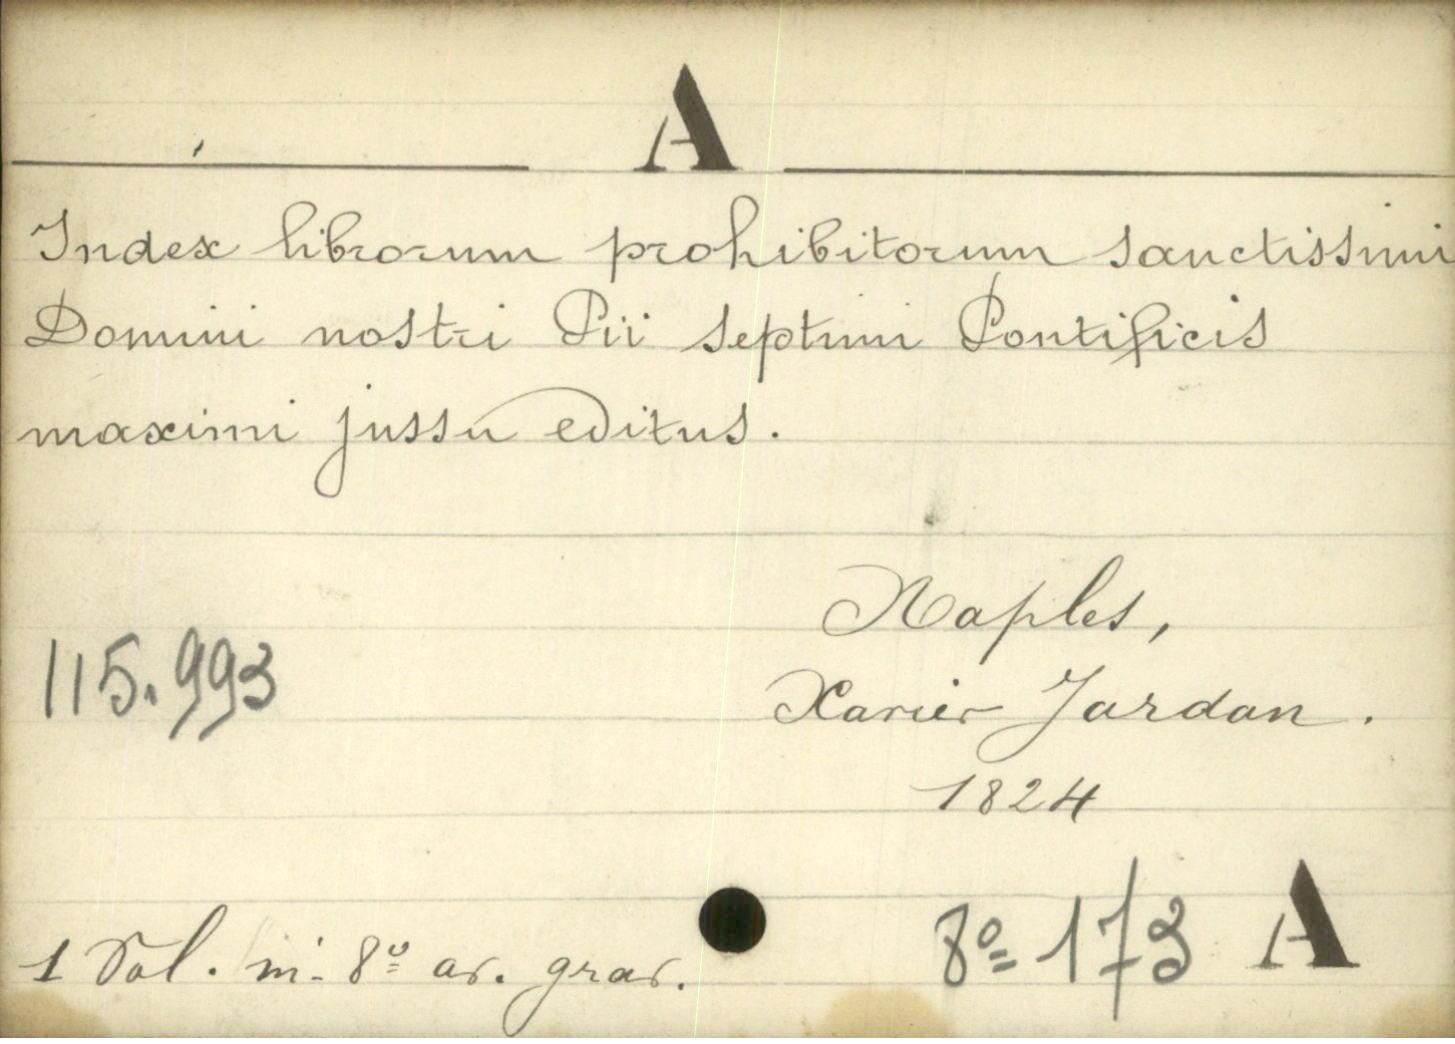 A
Index librorum prohibitorum sanctissimi
Domini nostri Pii septimi Pontificis
maximi jussu editus.
Naples,
115.993
Xavier Jardan.
1824
1 Vol. in-8º av. grav.
8º 173 A